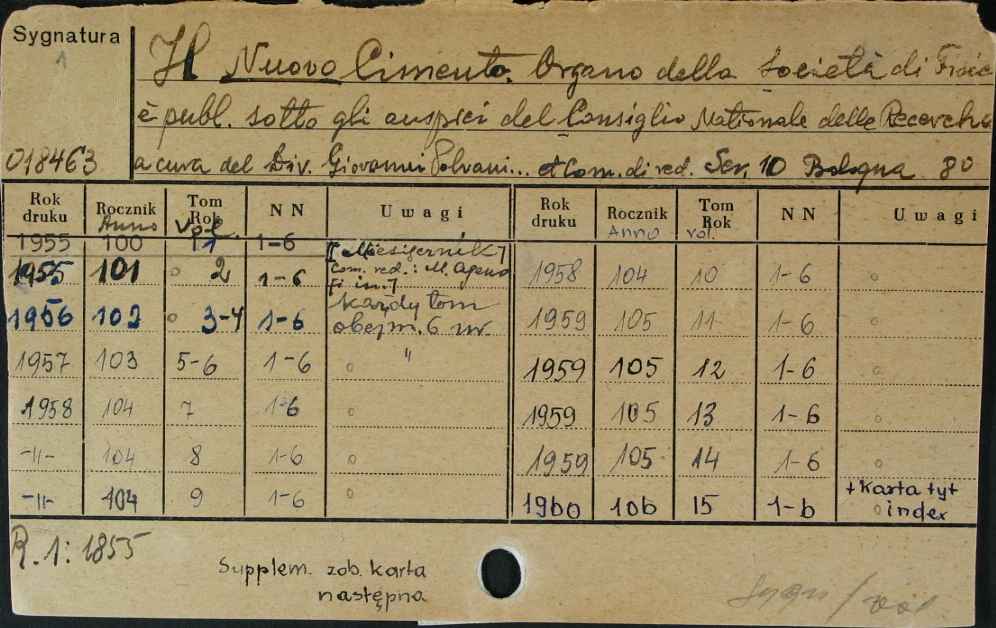 Sygnatura
Il Nuovo Cimento. Organo della Società di Fisic
è publ. sotto gli auspici del Consiglio Nationale delle Recerche
018463 a cura del Div. Giovanni Polvani... et Com. di red. Ser. 10 Bologna 8o
Rok druku Rocznik Anno Tom Rok Vol. NN Uwagi
1955 100 1 1-6 [Miesięcznik]
1955 101 2 1-6 Com. red.: M.
1956 102 3-4 1-6 każdy tom
obejm. 6 nr.
1957 103 5-6 1-6 "
1958 104 7 1-6
-"- 104 8 1-6
-"- 104 9 1-6
Rok druku Rocznik Anno Tom Rok vol. NN Uwagi
1958 104 10 1-6
1959 105 11 1-6
1959 105 12 1-6
1959 105 13 1-6
1959 105 14 1-6
1960 106 15 1-6 + Karta tyt
index
R. 1: 1855
Supplem. zob. karta
następna